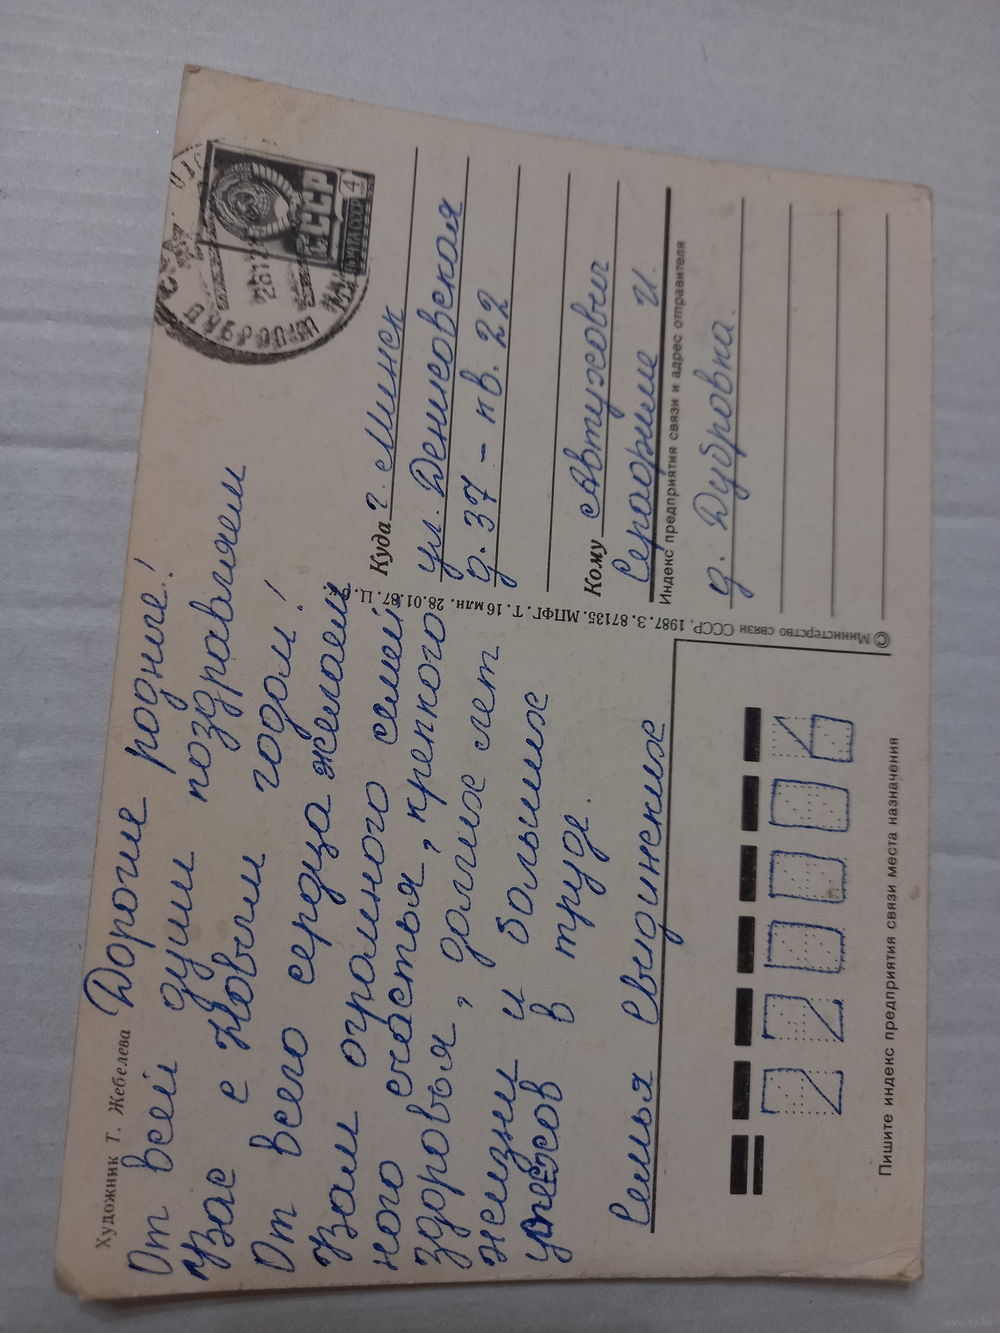 Художник Г. Жебелева
Дорогие родные!
От всей души поздравляем
Вас с Новым годом!
От всего сердца желаем
Вам огромного семей
ного счастья, крепкого
здоровья, долгих лет
жизни и больших
успехов в труде.
Семья
СССР
ПОЧТА СССР
4
Куда г. Минск
ул. Денисовская
д. 37 – кв. 22
Кому Автухович
Серафиме И.
Индекс предприятия связи и адрес отправителя
д. Дубровка.
© Министерство связи СССР, 1987. З. 87135. МПФГ. Т. 16 млн. 28.01.87. Ц.
220006
Пишите индекс предприятия связи места назначения
www.ay.by